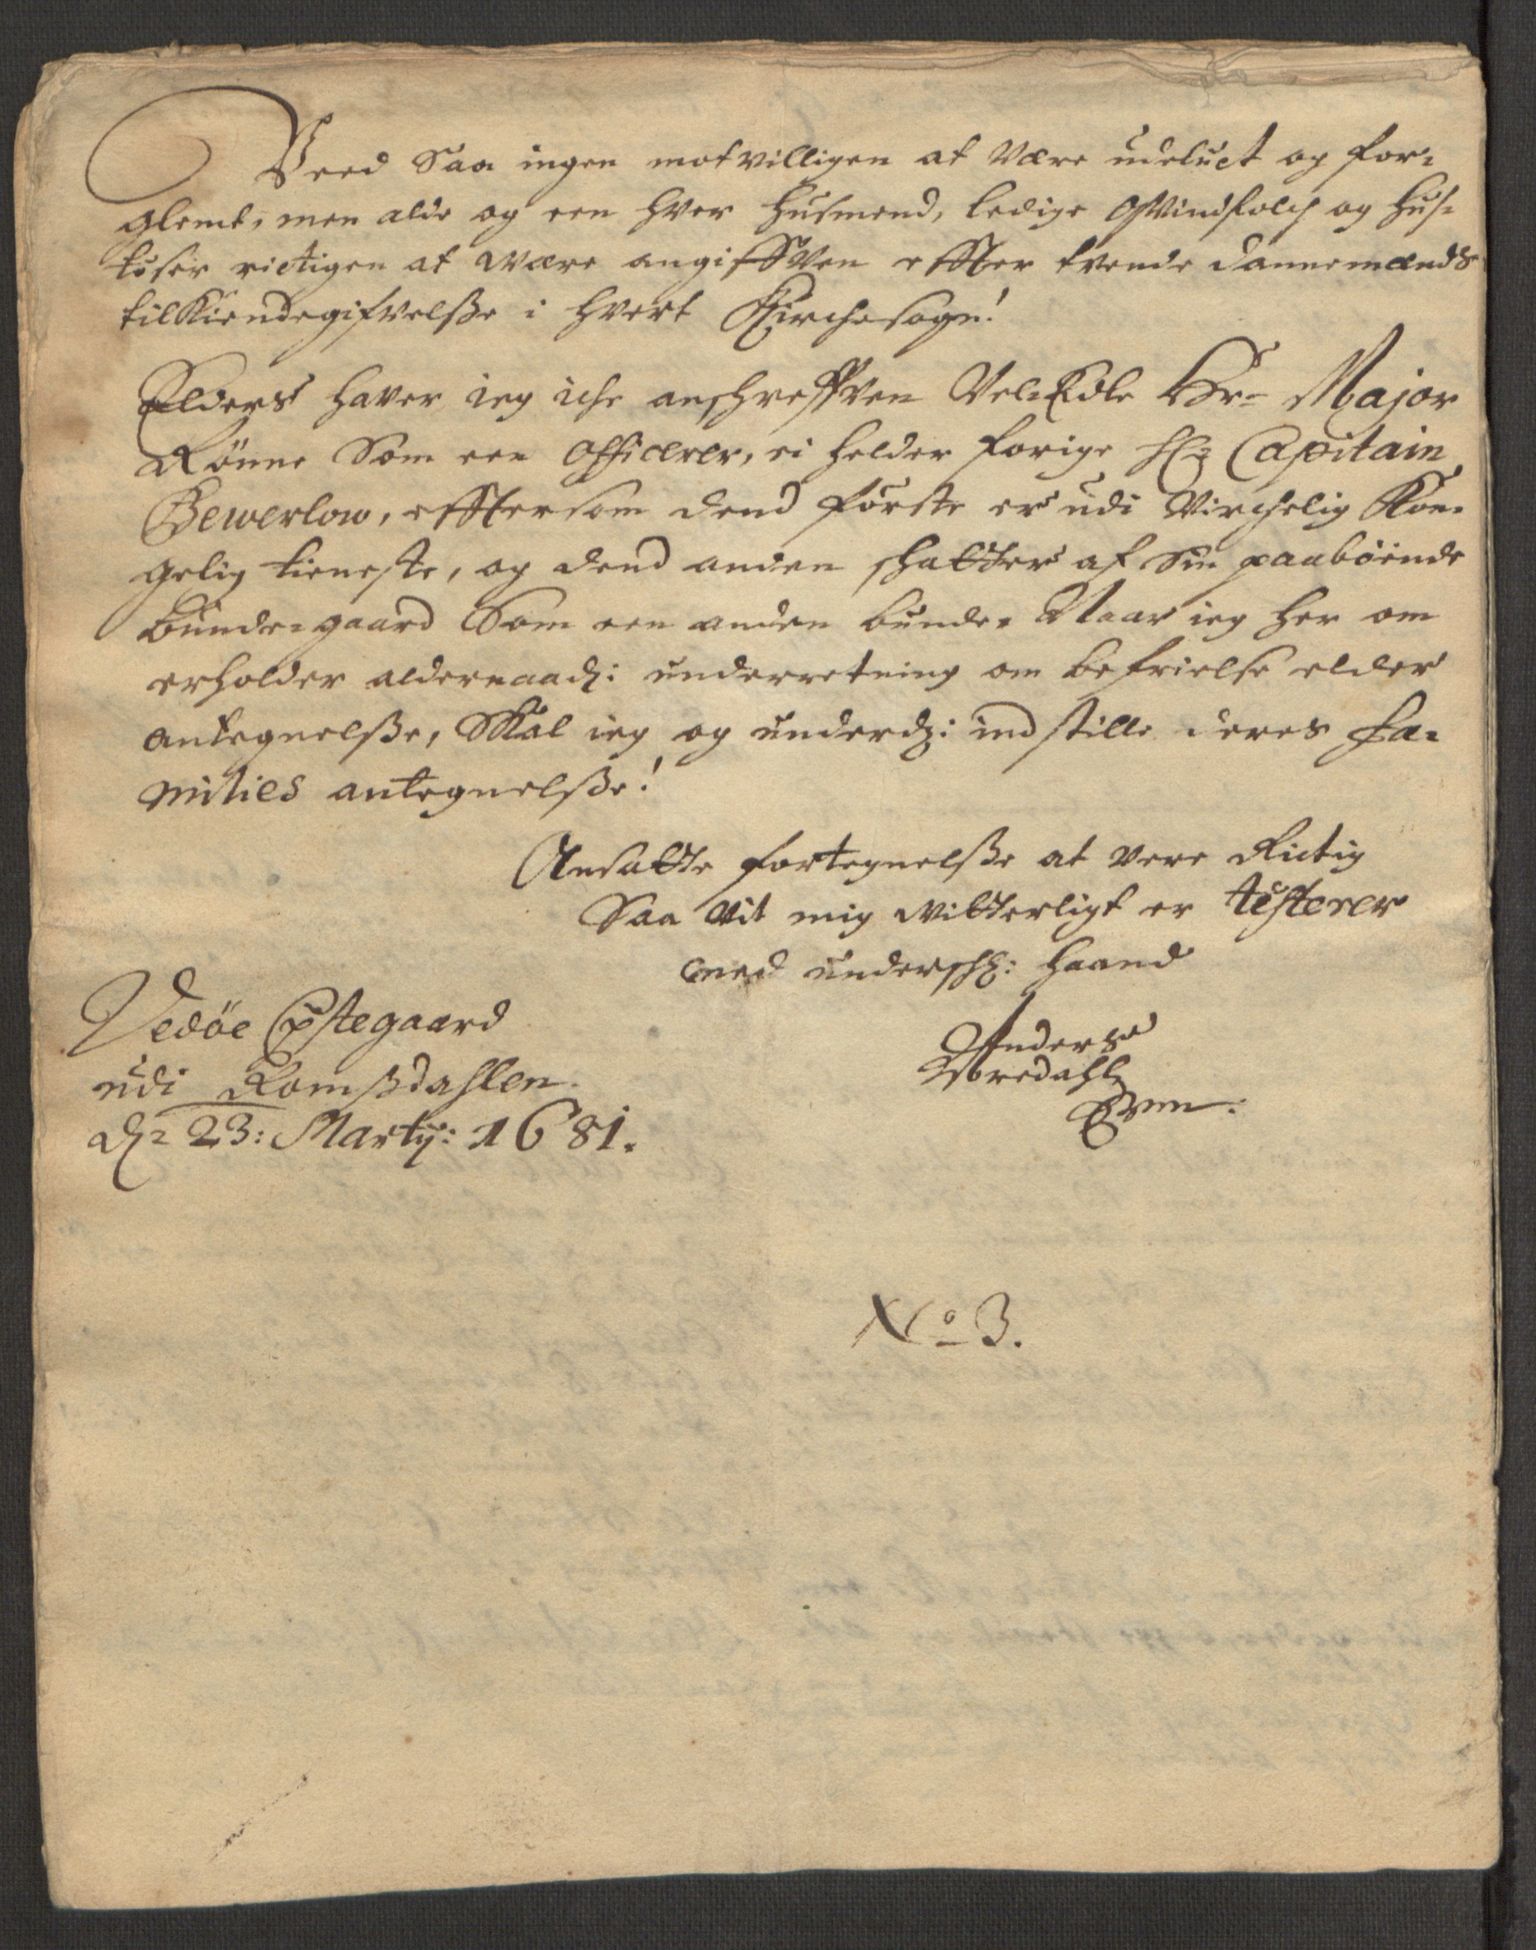 Veed Saa ingen motvilligen at Være udeluct og for-
glemt, men alde og een hver husmend, ledige Qvindfolch og hus-
koser rictigen at være angiffven effter tvende dannemænds
tilkiendegifvelsse i hvert Kirchesogn!
Elders haver ieg iche anschreffven Vel-Edle Hr- Major
Rönne Som een Officerer, ei helder forige Hr Capitain
Bewerlow, efftersom dend förste er udi Virchelig Kon-
gelig tieneste, og dend anden schatter af Sin paaböende
bunde-gaard Som een anden bunde. Naar ieg her om
erholder aldernaad: underretning om befrielse elder
antegnelsse, Skal ieg og underd: ind stille deres Fa-
milies antegnelsse!
Ansatte fortegnelsse at vere Rictig
Saa vit mig vitterligt er testerer
med undersch: haand
Vedöe Östegaard
udi Romssdahlen.
d- 23: Martij: 1681.
Anders
Noredahl
Even:
No 3.